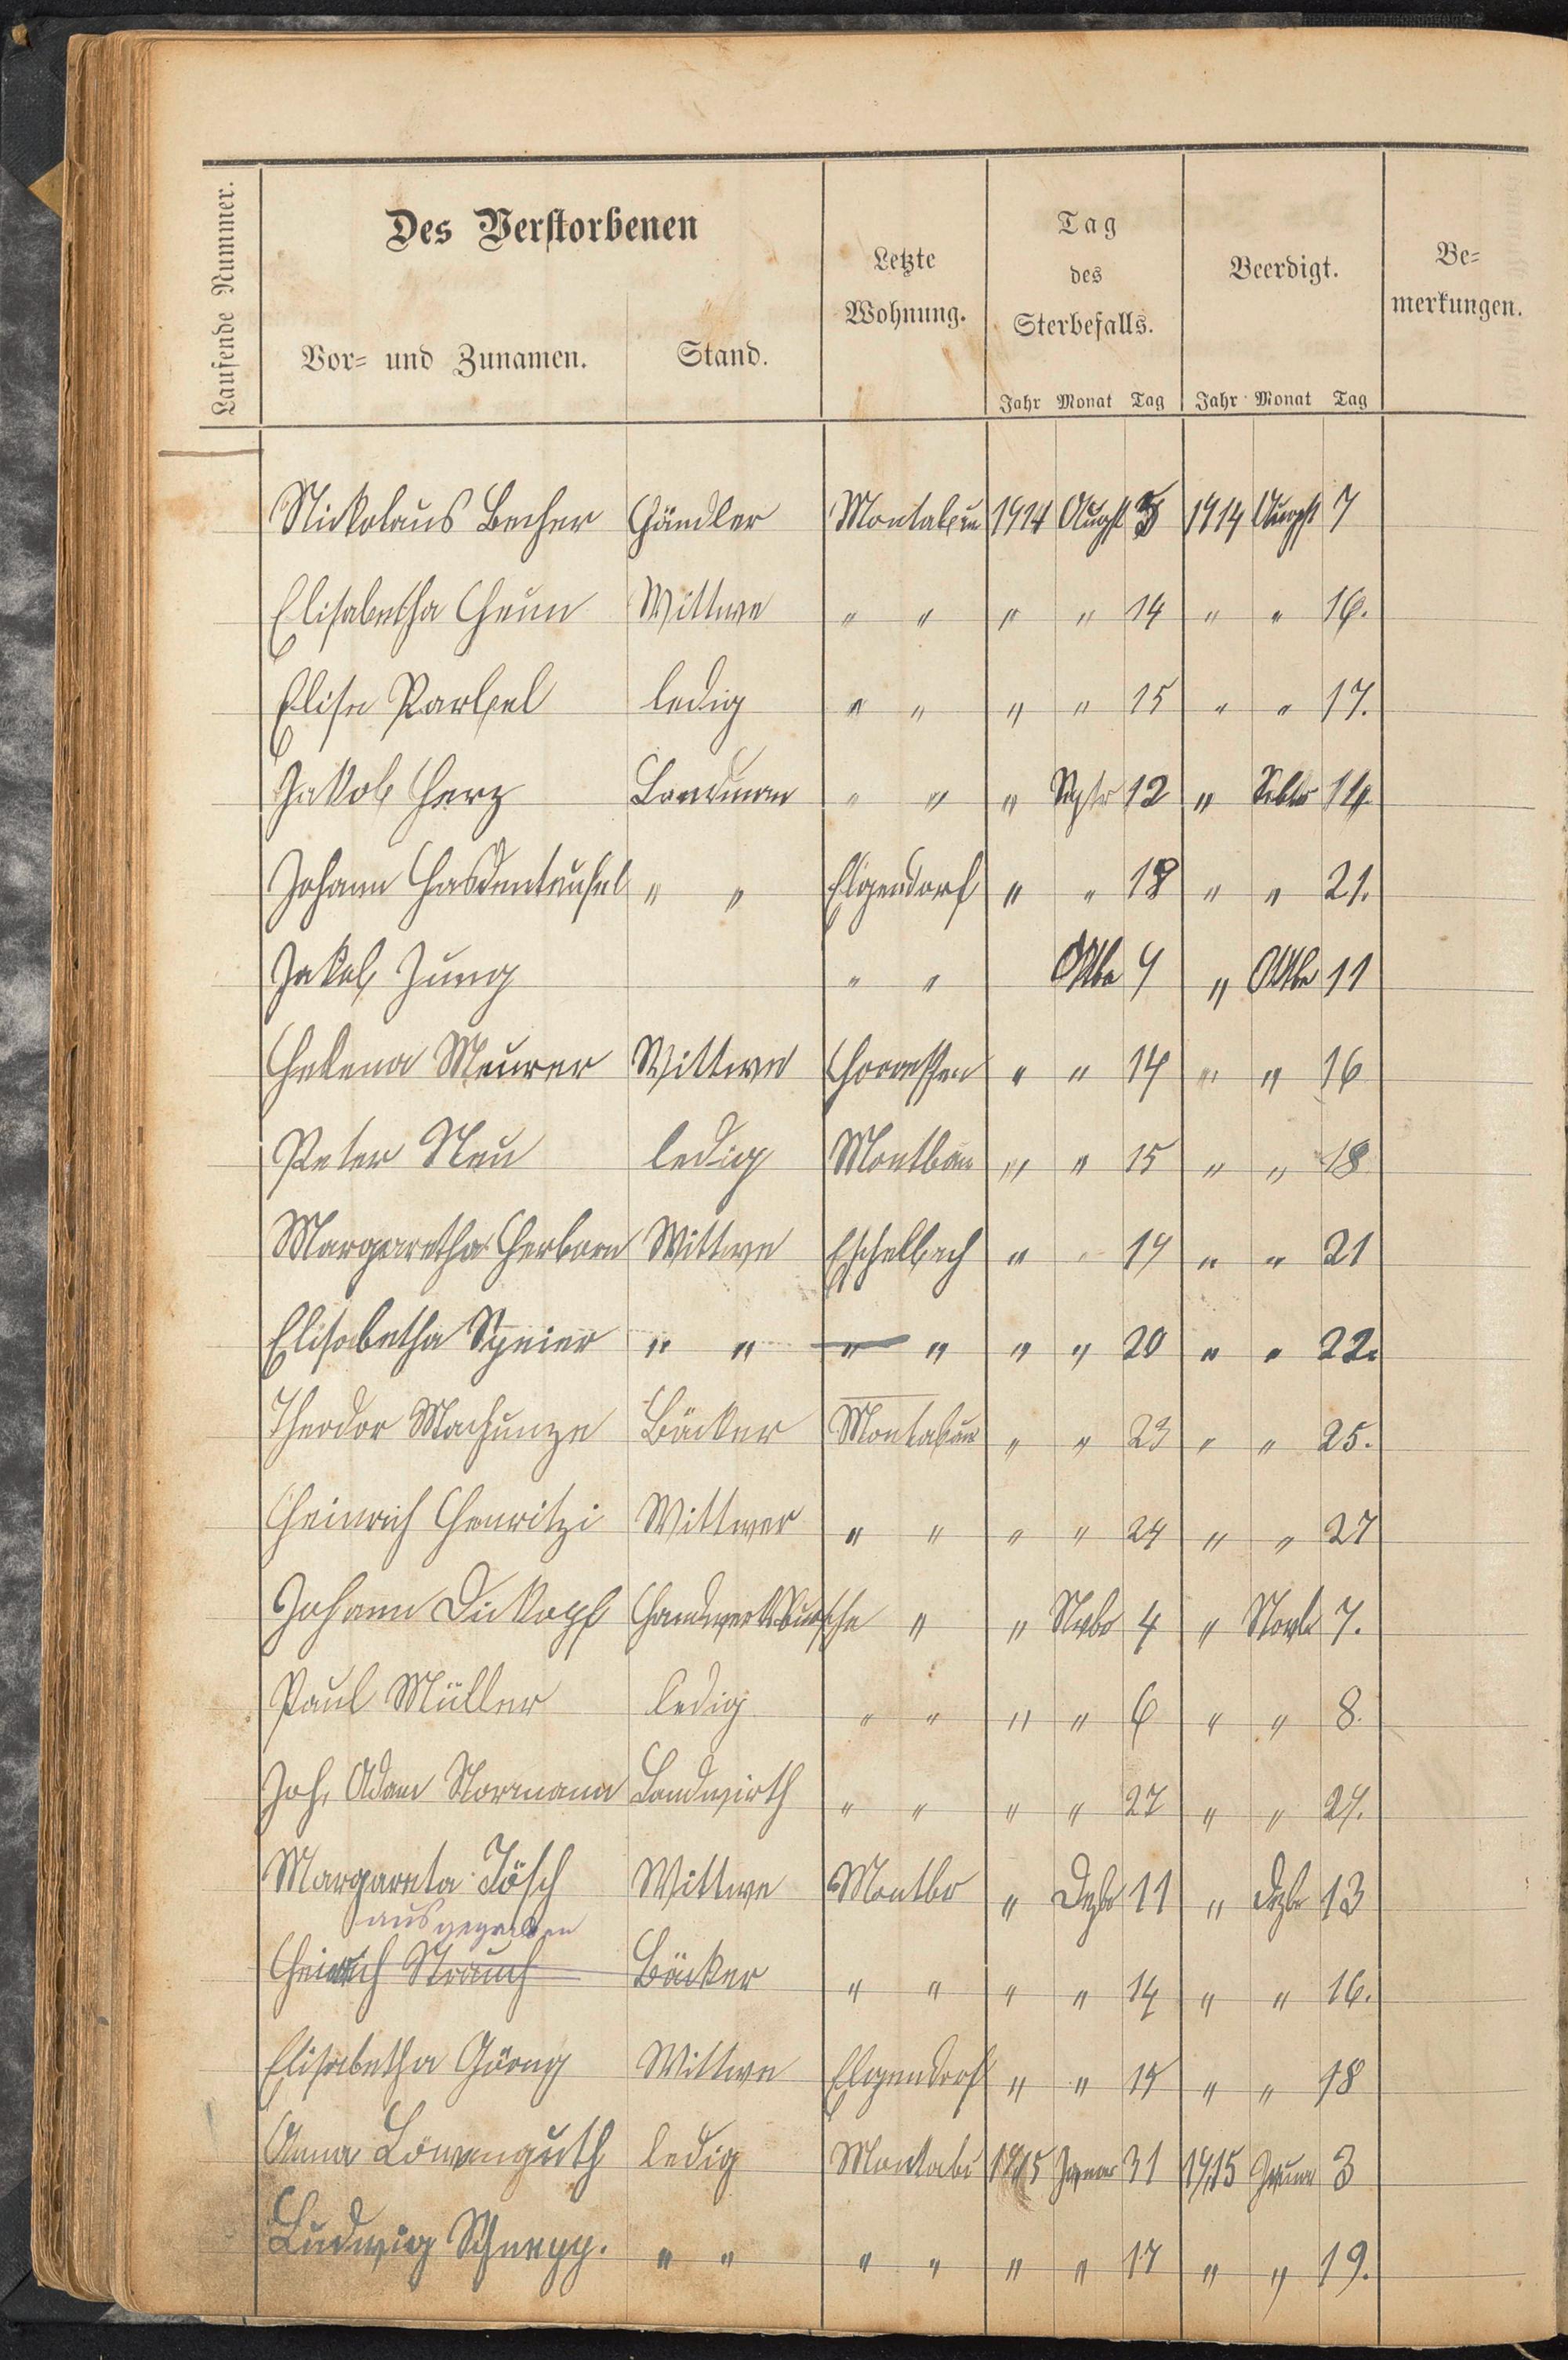 Laufende Nummer.
Des Verstorbenen
Vor- und Zunamen.
Stand.
Letzte
Wohnung.
Tag
des
Sterbefalls.
Beerdigt.
Be-
merkungen.
Jahr Monat Tag Jahr Monat Tag
Nickolaus Becher Händler 1914 August 5 1914 August 7
Elisabetha Heun Wittwe " " " " 14 " " 16.
Elise ledig " " " " 15 " " 17.
Jakob Herz Landman " " " Septr 12 " 14.
Johann Hasdenteufel " " Elgendorf " " 18 " " 21.
Jakob Jung " " Oktbr 9 " Oktbr 11
Helena Meurer Wittwe Horressen " " 14 " " 16
Peter Neu ledig Montbau " " 15 " " 18
Margaretha Herborn Wittwe Eschelbach " " 19 " " 21
Elisabetha Speier " " " " " " 20 " " 22.
Theodor Machunze Bäcker Montabaur " " 23 " " 25.
Heinrich Henritzi Wittwer " " " " 24 " " 27
Johann Dickopf Handwerksbursche " " Nvbr 4 " Novbr 7.
Paul Müller ledig " " " " 6 " " 8.
Joh. Adam Normann Landwirth " " " " 27 " " 29.
Margareta Lösch Wittwe Montbr " Dezbr 11 " Dezbr 13
ausgegraben
Heinrich Strauch Bäcker " " " " 14 " " 16.
Elisabetha Göung Wittwe Elgendorf " " 15 " " 18
Anna Löwenguth ledig Montabr 1915 Januar 31 1915 Januar 3
Ludwig Schnepp. " " " " " " 17 " " 19.